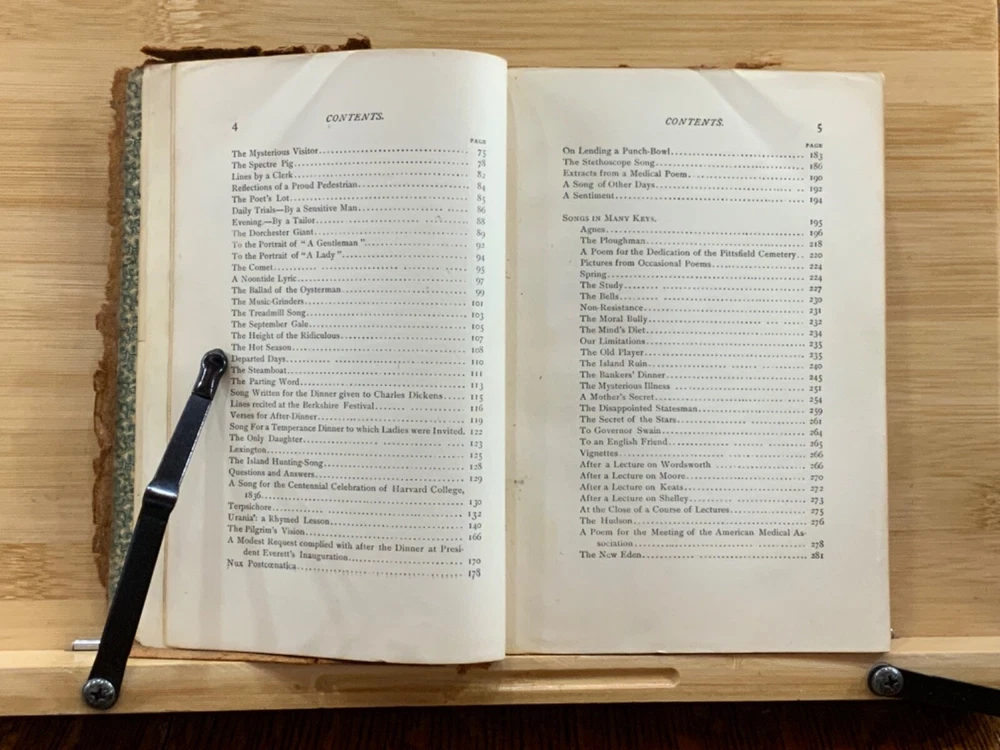 4
CONTENTS.
PAGE
The Mysterious Visitor........ 75
The Spectre Pig........ 78
Lines by a Clerk........ 82
Reflections of a Proud Pedestrian........ 84
The Poet's Lot........ 85
Daily Trials—By a Sensitive Man........ 86
Evening.—By a Tailor........ 88
The Dorchester Giant........ 89
To the Portrait of "A Gentleman"........ 92
To the Portrait of "A Lady"........ 94
The Comet........ 95
A Noontide Lyric........ 97
The Ballad of the Oysterman........ 99
The Music-Grinders........ 101
The Treadmill Song........ 103
The September Gale........ 105
The Height of the Ridiculous........ 107
The Hot Season........ 108
Departed Days........ 110
The Steamboat........ 111
The Parting Word........ 113
Song Written for the Dinner given to Charles Dickens........ 115
Lines recited at the Berkshire Festival........ 116
Verses for After-Dinner........ 119
Song For a Temperance Dinner to which Ladies were Invited. 122
The Only Daughter........ 123
Lexington........ 125
The Island Hunting-Song........ 128
Questions and Answers........ 129
A Song for the Centennial Celebration of Harvard College,
1836........ 130
Terpsichore........ 132
Urania: a Rhymed Lesson........ 140
The Pilgrim's Vision........ 166
A Modest Request complied with after the Dinner at Presi-
dent Everett's Inauguration........ 170
Nux Postcœnatica........ 178
CONTENTS.
5
PAGE
On Lending a Punch-Bowl........ 183
The Stethoscope Song........ 186
Extracts from a Medical Poem........ 190
A Song of Other Days........ 192
A Sentiment........ 194
SONGS IN MANY KEYS. 195
Agnes........ 196
The Ploughman........ 218
A Poem for the Dedication of the Pittsfield Cemetery... 220
Pictures from Occasional Poems........ 224
Spring........ 224
The Study........ 227
The Bells........ 230
Non-Resistance........ 231
The Moral Bully........ 232
The Mind's Diet........ 234
Our Limitations........ 235
The Old Player........ 235
The Island Ruin........ 240
The Bankers' Dinner........ 245
The Mysterious Illness........ 251
A Mother's Secret........ 254
The Disappointed Statesman........ 259
The Secret of the Stars........ 261
To Governor Swain........ 264
To an English Friend........ 265
Vignettes........ 266
After a Lecture on Wordsworth........ 266
After a Lecture on Moore........ 270
After a Lecture on Keats........ 272
After a Lecture on Shelley........ 273
At the Close of a Course of Lectures........ 275
The Hudson........ 276
A Poem for the Meeting of the American Medical As-
sociation........ 278
The New Eden........ 281